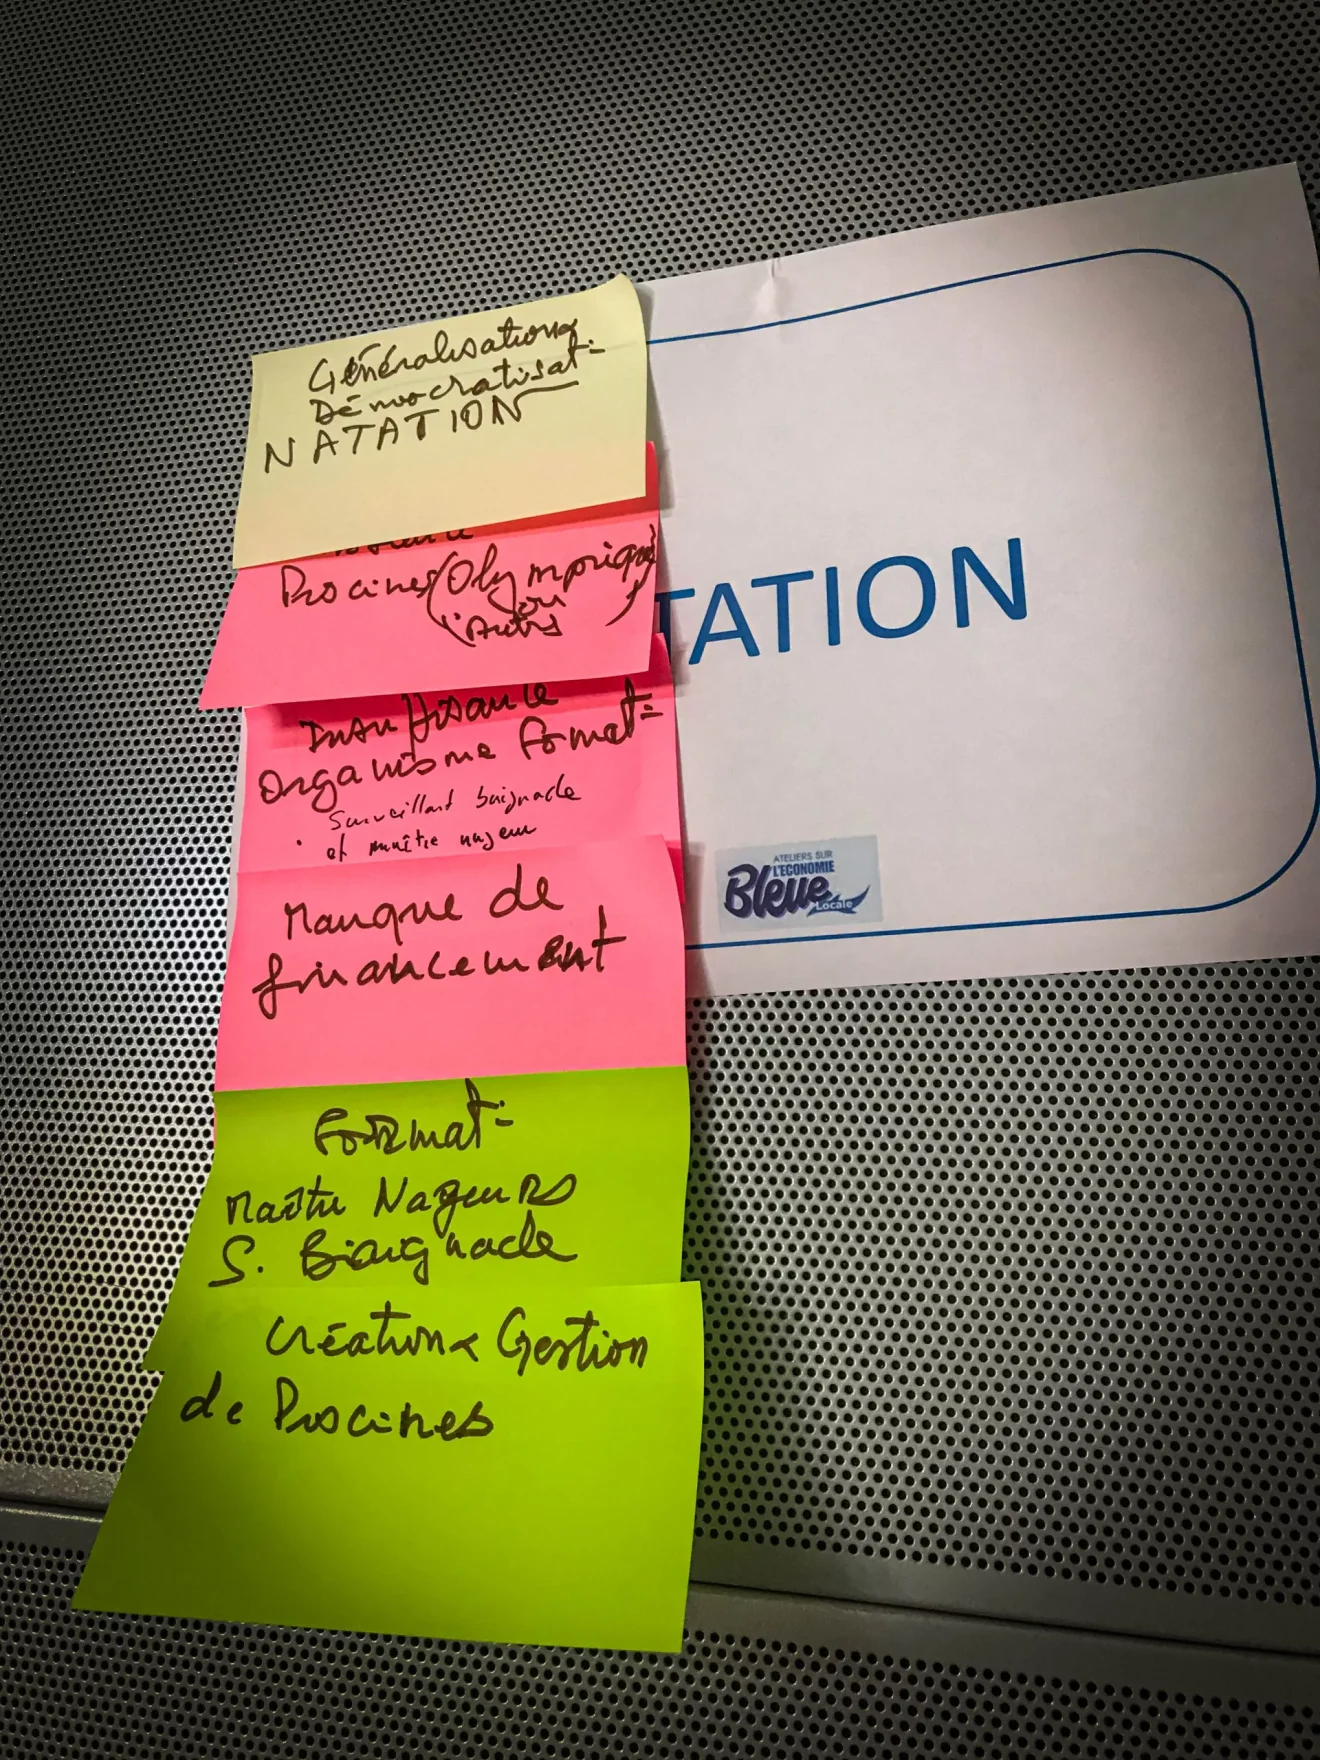 Généralisation &
Démocratisat=
NATATION
Piscines (Olympique)
ou
Autres
Insuffisance
Organisme format=
Surveillant baignade
et maître nageur
Manque de
financement
Format=
Maître Nageurs
S. Baignade
Création & Gestion
de Piscines
TATION
ATELIERS SUR
L'ECONOMIE
Bleue
Locale